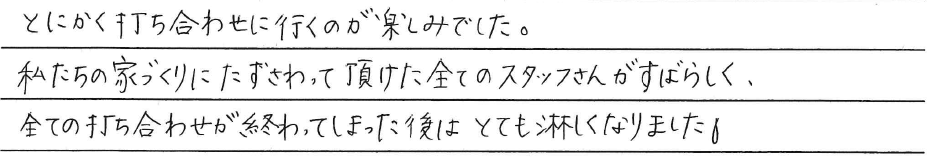 とにかく打ち合わせに行くのが楽しみでした。
私たちの家づくりにたずさわって頂けた全てのスタッフさんがすばらしく、
全ての打ち合わせが終わってしまった後はとても淋しくなりました。